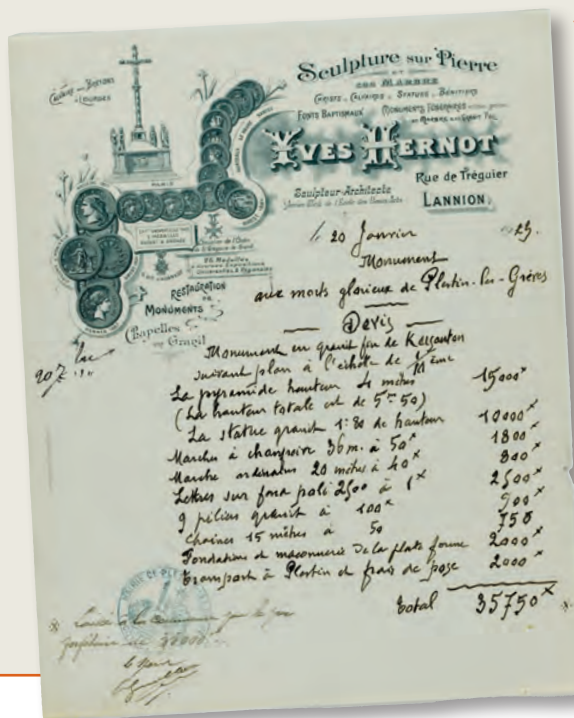 Calvaire des Bretons
à Lourdes
Sculpture sur Pierre
ET
SUR MARBRE
CHRISTS, CALVAIRES, STATUES, BÉNITIERS
FONTS BAPTISMAUX MONUMENTS FUNÉRAIRES
EN MARBRE ET GRANIT POLI
YVES HERNOT
Sculpteur-Architecte
Rue de Tréguier
LANNION
PARIS
26 Médailles
RESTAURATION
DE
MONUMENTS
Chapelles
en Granit
le 20 Janvier 1925.
Monument
aux morts glorieux de Plestin-les-Grèves
Devis
Monument en granit fin de Kersanton
suivant plan à l'échelle de 1/10ème
La pyramide hauteur 4 mètres 15000x
(La hauteur totale est de 5m 50)
La statue granit 1m80 de hauteur 10000x
Marches à chanfrein 36 m. à 50x 1800x
Marche ordinaires 20 mètres à 40x 800x
Lettres sur fond poli 2500 à 1x 2500x
9 piliers granit à 100x 900x
Chaînes 15 mètres à 50 750
Fondations et maçonnerie de la plate forme 2000x
Transport à Plestin et frais de pose 2000x
Total 35750x
Le Maire